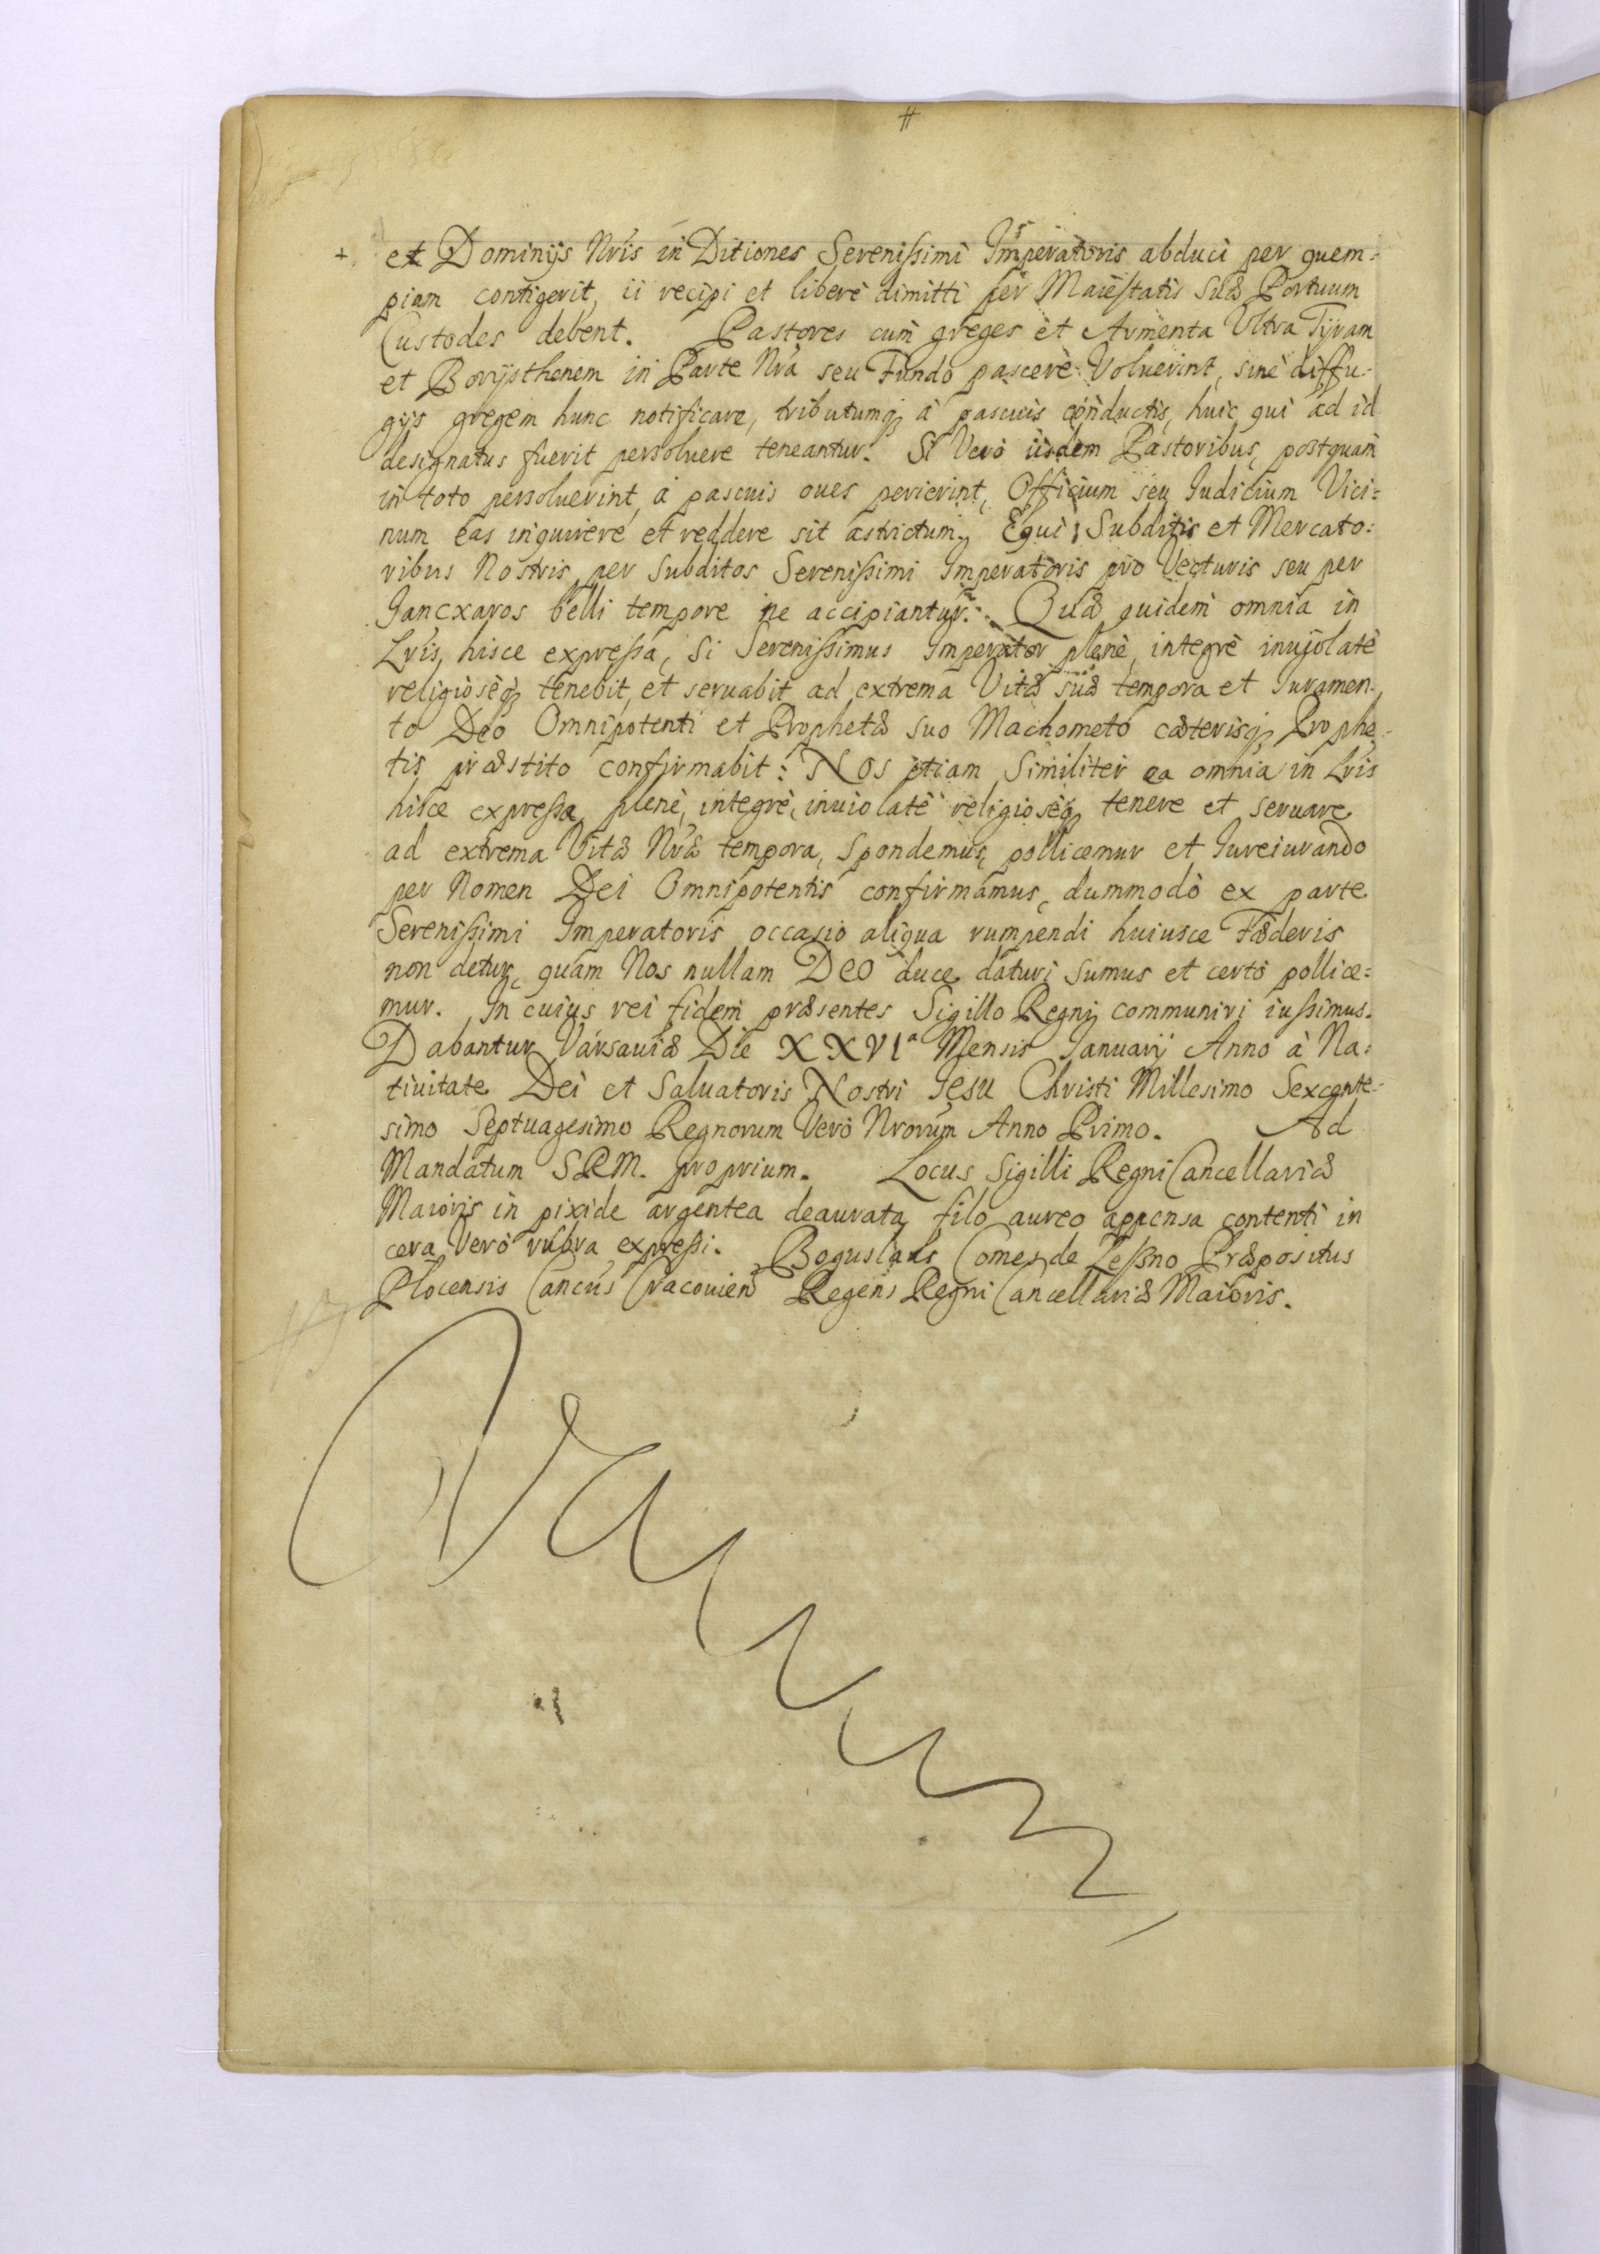 et Dominijs Nr̃is in Ditiones Serenissimi Imperatoris abduci per quem=
piam contigerit, ii recipi et liberè dimitti per Maiestatis Suæ Portuum
Custodes debent. Pastores cum greges et Armenta Vltra Tyram
et Borijsthenem in Parte Nr̃a seu Fundo pascere Voluerint, sine diffu=
gijs gregem hunc notificare, tributumq̨ à pascuis conductis, huic qui ad id
designatus fuerit persoluere teneantur. Si Verò iisdem Pastoribus, postquam
in toto persoluerint, à pascuis oues perierint, Officium seu Iudicium Vici=
num eas inquirere et reddere sit astrictum. Equi Subditis et Mercato=
ribus Nostris per Subditos Serenissimi Imperatoris pro Vecturis seu per
Ianczaros belli tempore ne accipiantur. Quæ quidem omnia in
Lr̃is hisce expressa, Si Serenissimus Imperator plenè, integrè inuiolatè
religiosèq̨ tenebit, et seruabit ad extrema Vitæ suæ tempora et Iuramen=
to Deo Omnipotenti et Prophetæ suo Machometo cæterisq̨ Prophe=
tis præstito confirmabit: Nos etiam Similiter ea omnia in Lr̃is
hisce expressa, plenè, integrè, inuiolatè religiosèq̨ tenere et seruare
ad extrema Vitæ Nr̃æ tempora, Spondemus, pollicemur et Iureiurando
per Nomen Dei Omnipotentis confirmamus, dummodò ex parte
Serenissimi Imperatoris occasio aliqua rumpendi huiusce Fæderis
non detur, quam Nos nullam Deo duce daturi sumus et certò pollice=
mur. In cuius rei fidem præsentes Sigillo Regni communiri iussimus.
Dabantur Varsauiæ Die XXVIª Mensis Ianuarij Anno à Na=
tiuitate Dei et Saluatoris Nostri Iesu Christi Millesimo Sexcente=
simo Septuagesimo Regnorum Verò Nr̃orum Anno Primo. Ad
Mandatum SRM. proprium. Locus Sigilli Regni Cancellariæ
Maioris in pixide argentea deaurata filo aureo appensa contenti in
cera Verò rubra expressi. Boguslaus Comes de Leßno Præpositus
Plocensis Cancus Cracouien Regens Regni Cancellariæ Maioris.